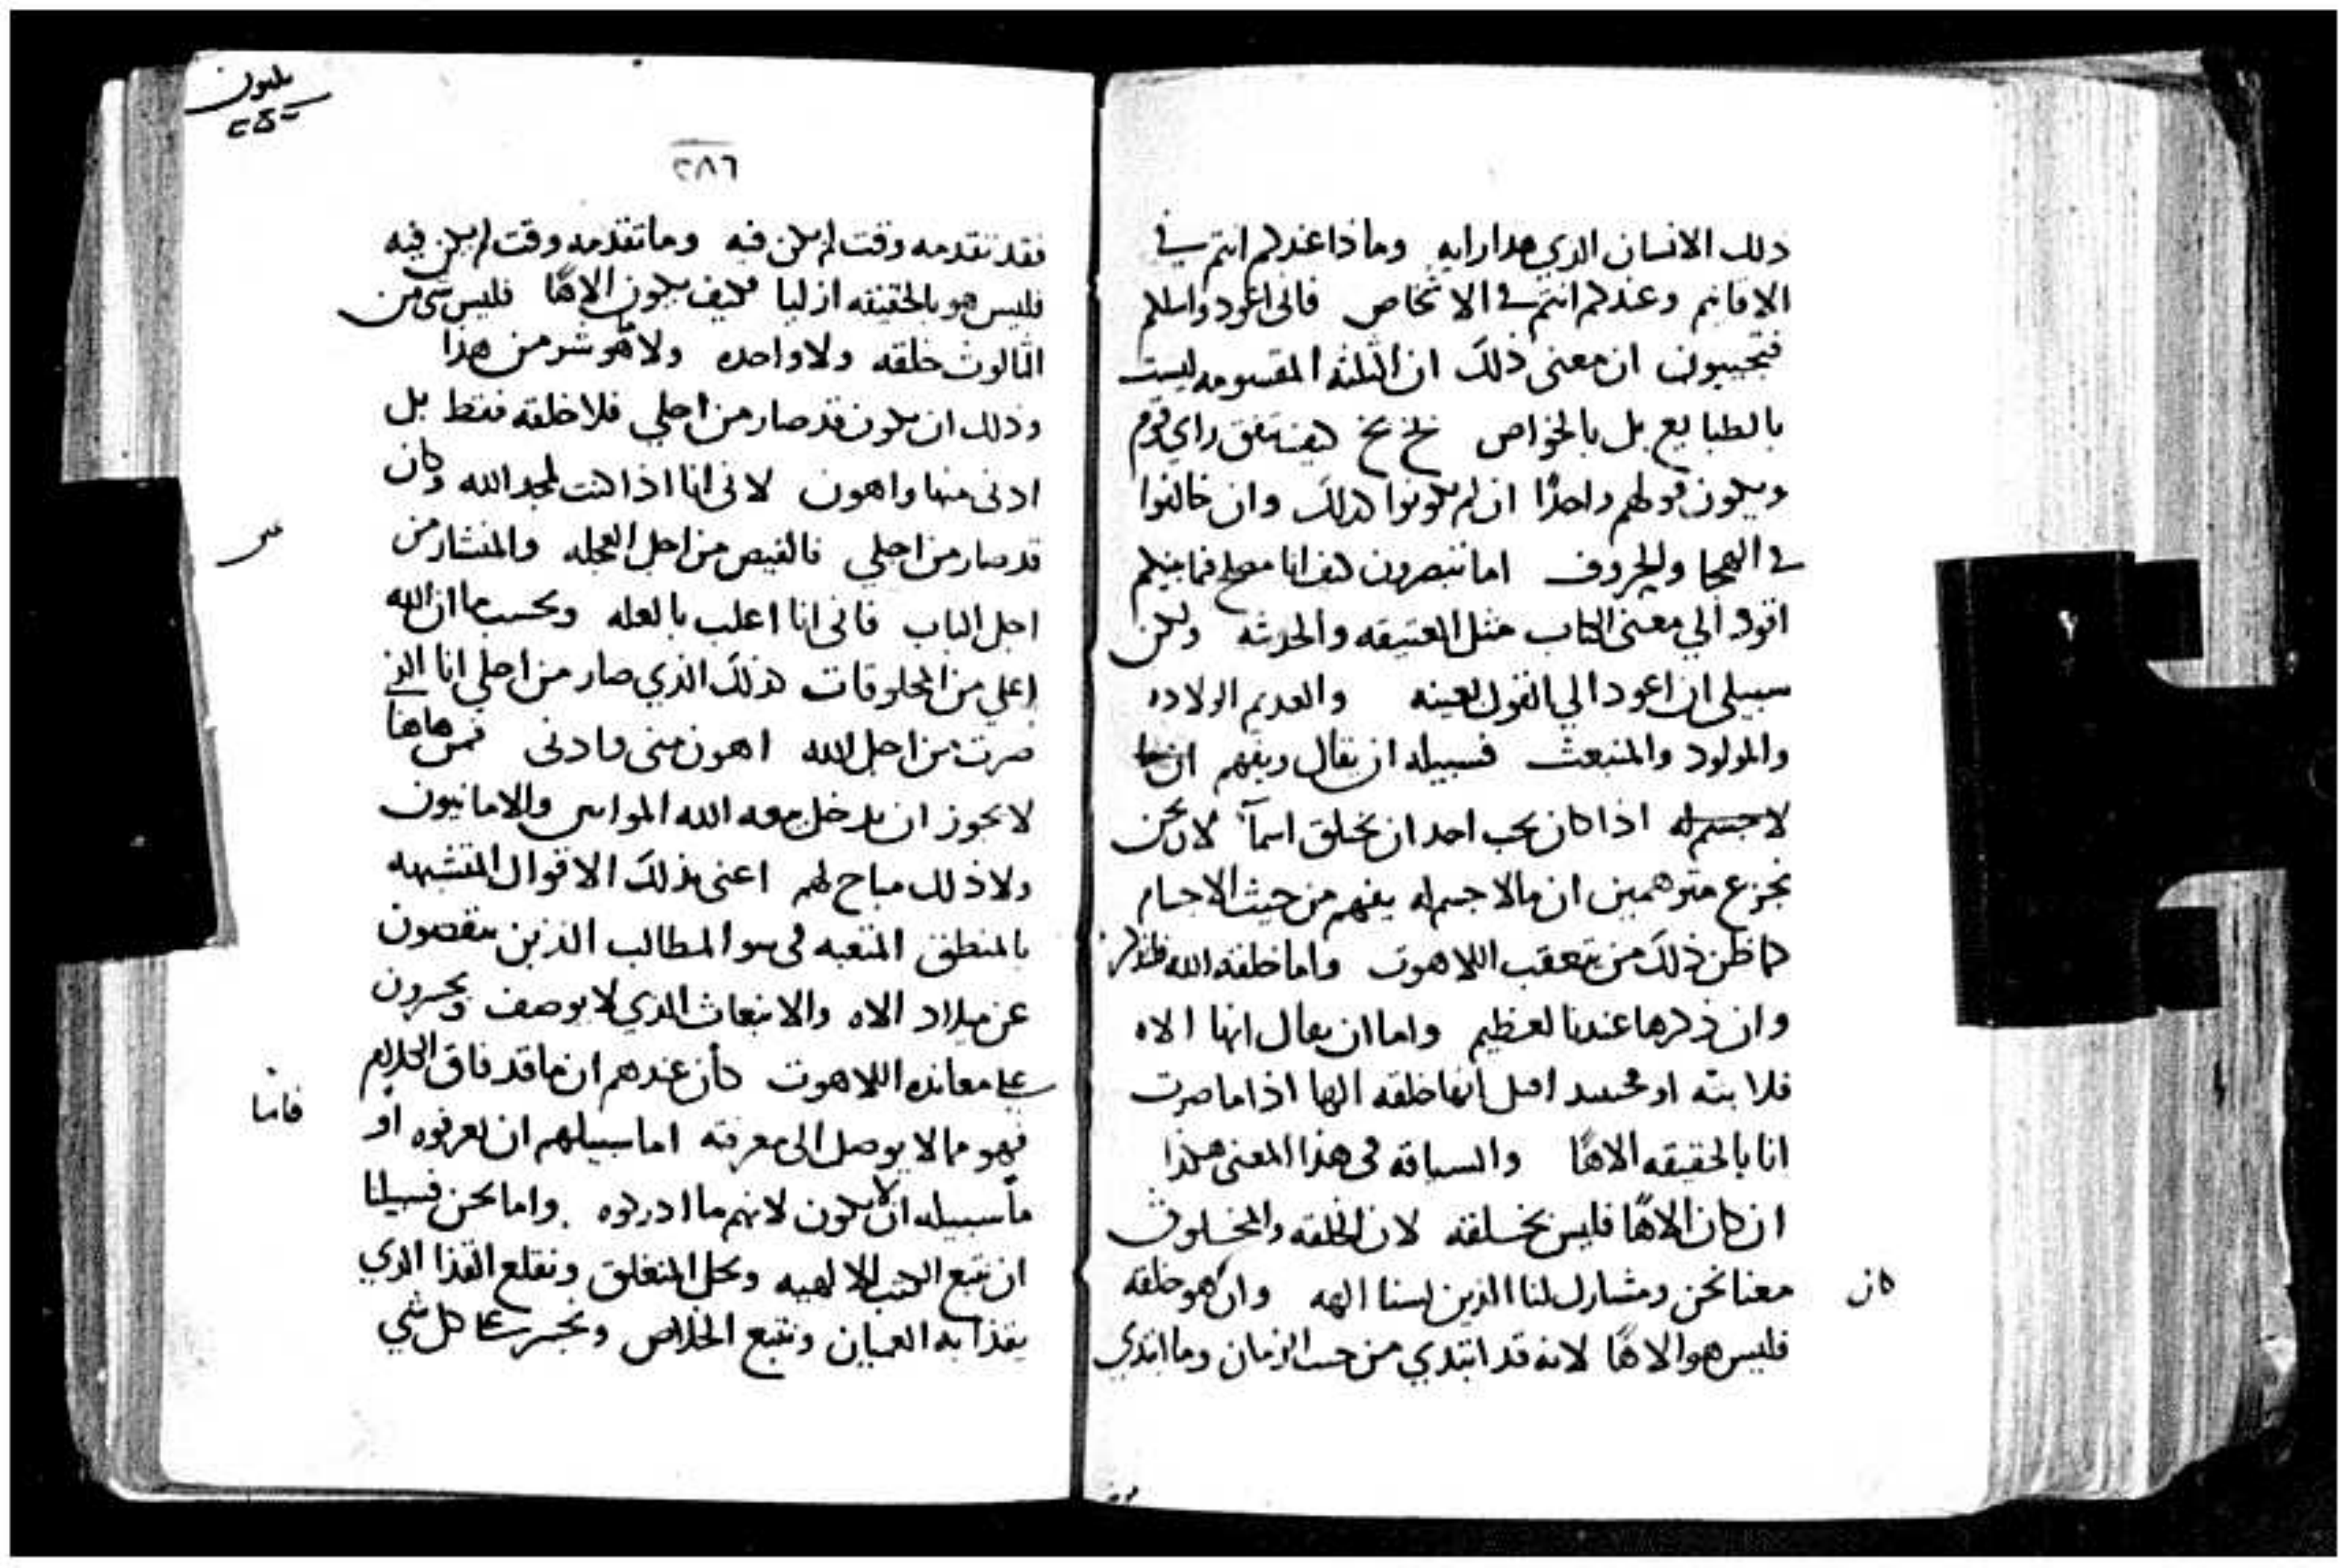 ذلك الانسان الذي هذا رايه وماذا عندكم انتم في
الاقانيم وعندكم انتم في الاشخاص فاني اعود واسلكم
فتجيبون ان معنى ذلك ان الثلثه المقسومه ليست
بالطبايع بل بالخواص نخ نخ كيف يتفق راي قوم
ويكون قولهم واحدًا ان لم يكونوا كذلك وان خالفوا
في الهجا والحروف اما تبصرون كيف انا مصلح فيما بينكم
اقود الي معنى الكتاب مثل العتيقه والحدثه ولكن
سبيلي ان اعود الي القول بعينه والعديم الولاده
والمولود والمنبعث فسبيله ان يقال ويفهم
لا جسم له اذا كان يحب احد ان يخلق اسمآ لان نحن
نجزع متوهمين ان مالا جسم له يفهم من حيث الاجسام
كما ظن ذلك من يتعقب اللاهوت واما خلقة الله
وان ذكرها عندنا لعظيم واما ان يقال انها الاه
فلا بته او اقبل انها خلقه الها اذا ما صرت
انا بالحقيقه الاهًا والسياقه في هذا المعنى هكذا
ان كان الاهًا فليس بخلقه لان الخلقه والمخلوق
معنا نحن ومشارك لنا الذين لسنا الهه وان هو خلقه
كان
فليس هو الاهًا لانه قد ابتدي من حيث الزمان وما ابتدي
يليون
٢٨٦
فقد تقدمه وقت لم يكن فيه وما تقدمه وقت لم يكن فيه
فليس هو بالحقيقه ازليا فكيف يكون الاهًا فليس شي من
الثالوث خلقه ولا واحده ولا هو شر من هذا
وذلك ان يكون قد صار من اجلي فلا خلقه فقط بل
ادنى منها واهون لاني انا اذا كنت لمجد الله وكان
قد صار من اجلي فالقيص من اجل العجله والمنشار من
اجل الباب فاني انا اغلب بالعله وبحسب ما ان الله
اعلي من المخلوقات كذلك الذي صار من اجلي انا الذي
صرت من اجل الله اهون مني وادنى فمن هاهنا
لا يجوز ان يدخل بيعه الله الموابيين والامانيون
ولا ذلك مباح لهم اعني بذلك الاقوال المتشبهه
بالمنطق المتعبه في سو المطالب الذين
عن ميلاد الاه والانبعاث الذي لا يوصف ويجسرون
علي معانده اللاهوت كأن عندهم ان ما قد فاق الكلام
فهو مما لا يوصل الى معرفته اما سبيلهم ان يعرفوه او
فاما
ما سبيله ان لا يكون لانهم ما ادركوه واما نحن فسبيلنا
ان نتبع الكتب الالهيه ونحل المنغلق ونقلع القذا الذي
يقذا به العميان ونتبع الخلاص ونجسر علي كل شي